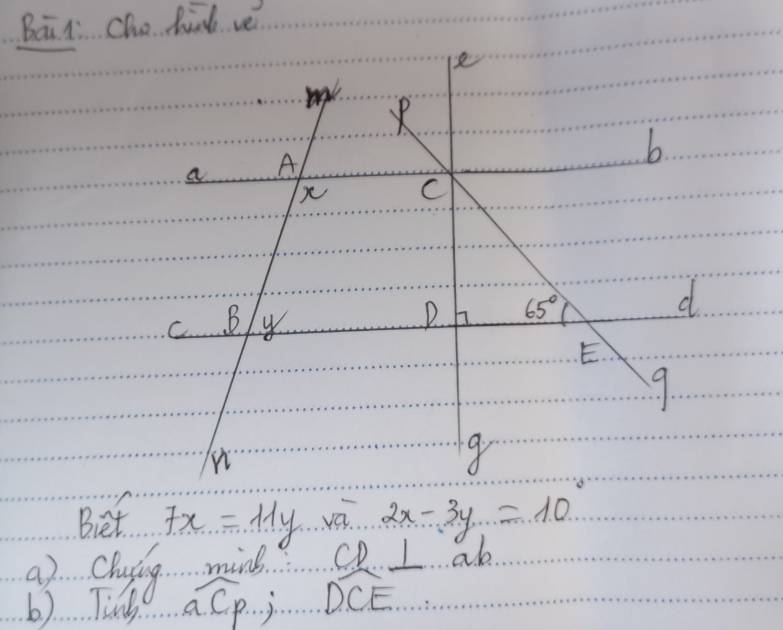 Bài 1: Cho hình vẽ
e
m
p
a A b
x C
c B y D 65° d
E
q
n g
Biết 7x = 11y và 2x - 3y = 10°
a) Chứng minh: CD ⊥ ab
b) Tính aCp; DCE